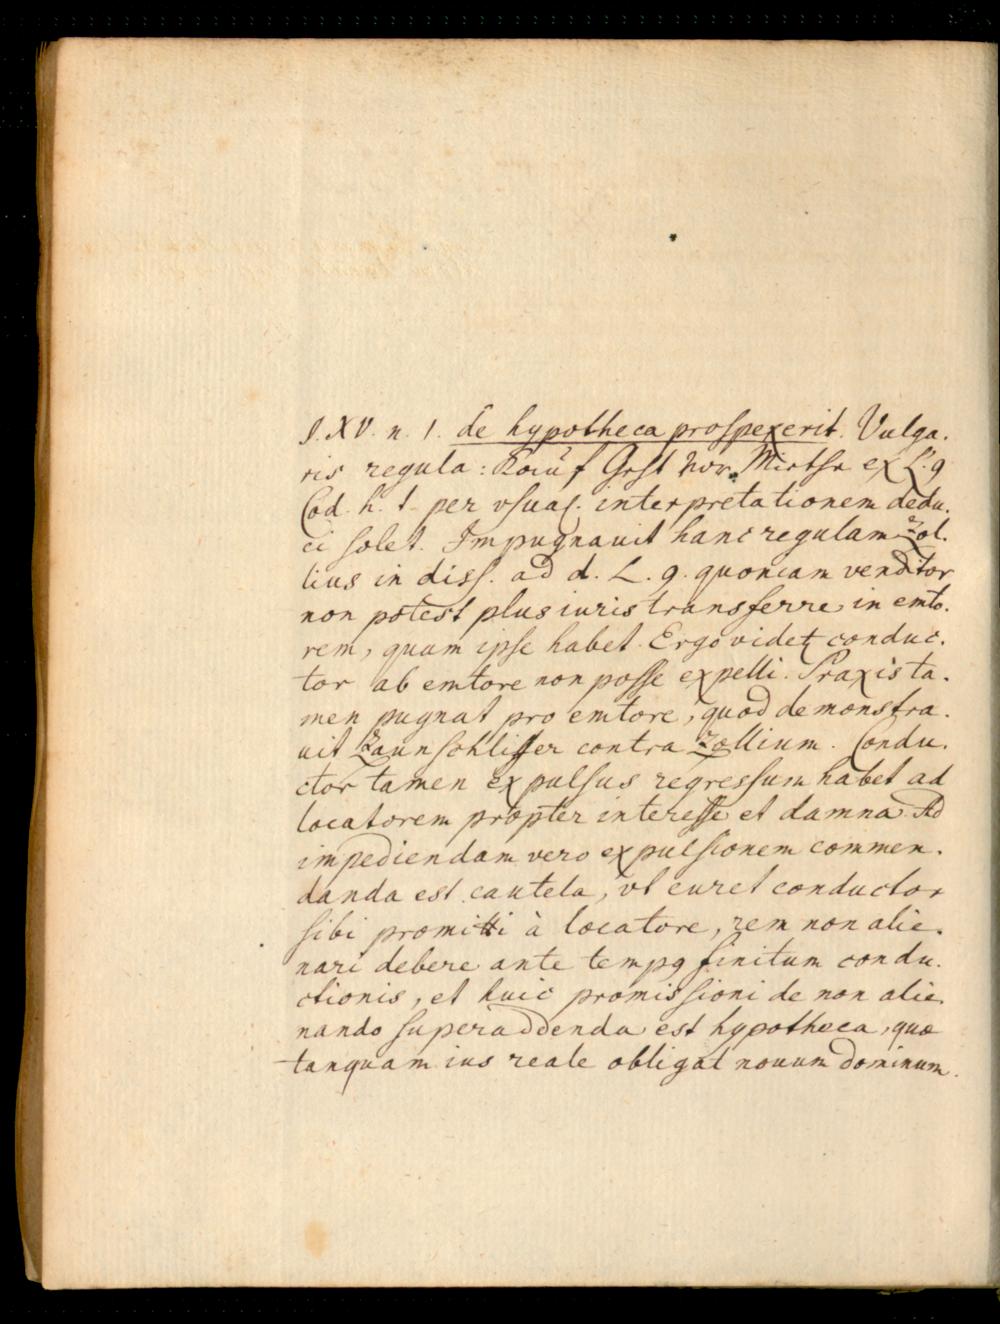 §. XV. n. 1. de hypotheca prospexerit. Vulga.
ris regula: Kauf geht vor Miethe ex L. 9
Cod. h. t. per vsual. interpretationem dedu.
ci solet. Impugnavit hanc regulam Zol.
lius in diss. ad d. L. 9. quoniam venditor
non potest plus iuris transferre in emto.
rem, quam ipse habet. Ergo videt conduc.
tor ab emtore non posse expelli. Praxis ta.
men pugnat pro emtore, quod demonstra.
uit Zaunschliffer contra Zollium. Condu.
ctor tamen expulsus regressum habet ad
locatorem propter interesse et damna. Ad
impediendam vero expulsionem commen.
danda est cautela, vt curet conductor
sibi promitti à locatore, rem non alie.
nari debere ante tempq finitum condu.
ctionis, et huic promissioni de non alie
nando superaddenda est hypotheca, quæ
tanquam ius reale obligat nouum dominum.